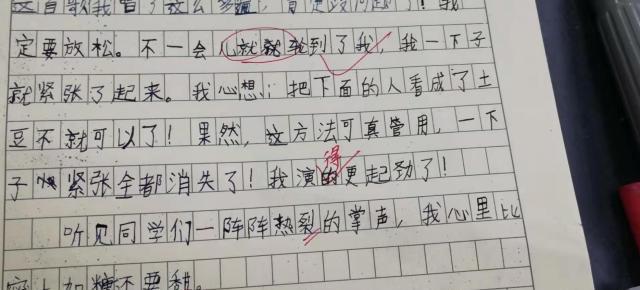 这首歌我唱了这么多遍,肯定没问题了!我
定要放松。不一会儿就就轮到了我,我一下子
就紧张了起来。我心想:把下面的人看成了土
豆不就可以了!果然,这方法可真管用,一下
得
子 紧张全都消失了!我演的更起劲了!
听见同学们一阵阵热裂的掌声,我心里比
上加糖还要甜。